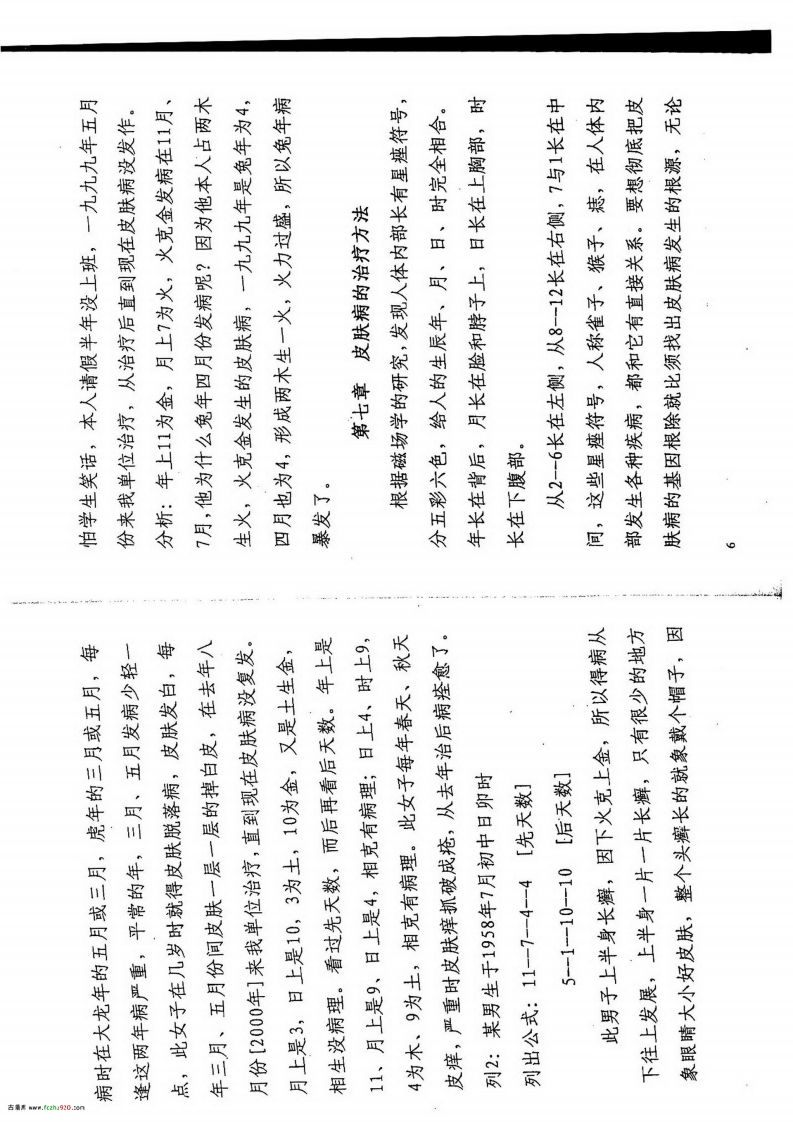 病时在大龙年的五月或三月，虎年的三月或五月，每
逢这两年病严重，平常的年，三月、五月发病少轻一
点，此女子在几岁时就得皮肤脱落病，皮肤发白，每
年三月、五月份间皮肤一层一层的掉白皮，在去年八
月份[2000年]来我单位治疗，直到现在皮肤病没复发。
月上是3，日上是10，3为土，10为金，又是土生金，
相生没病理。看过先天数，而后再看后天数。年上是
11、月上是9、日上是4，相克有病理；日上4、时上9，
4为木、9为土，相克有病理。此女子每年春天、秋天
皮痒，严重时皮肤痒抓破成疮，从去年治后病痊愈了。
列2：某男生于1958年7月初中日卯时
列出公式：11—7—4—4 [先天数]
5—1—10—10 [后天数]
此男子上半身长癣，因下火克上金，所以得病从
下往上发展，上半身一片一片长癣，只有很少的地方
象眼睛大小好皮肤，整个头癣长的就象戴个帽子，因
怕学生笑话，本人请假半年没上班，一九九九年五月
份来我单位治疗，从治疗后直到现在皮肤病没发作。
分析：年上11为金，月上7为火，火克金发病在11月、
7月，他为什么兔年四月份发病呢？因为他本人占两木
生火，火克金发生的皮肤病，一九九九年是兔年为4，
四月也为4，形成两木生一火，火力过盛，所以兔年病
暴发了。
第七章 皮肤病的治疗方法
根据磁场学的研究，发现人体内部长有星座符号，
分五彩六色，给人的生辰年、月、日、时完全相合。
年长在背后，月长在脸和脖子上，日长在上胸部，时
长在下腹部。
从2—6长在左侧，从8—12长在右侧，7与1长在中
间，这些星座符号，人称雀子、猴子、痣，在人体内
部发生各种疾病，都和它有直接关系。要想彻底把皮
肤病的基因根除就比须找出皮肤病发生的根源，无论
6
古籍库 www.fczhu920.com